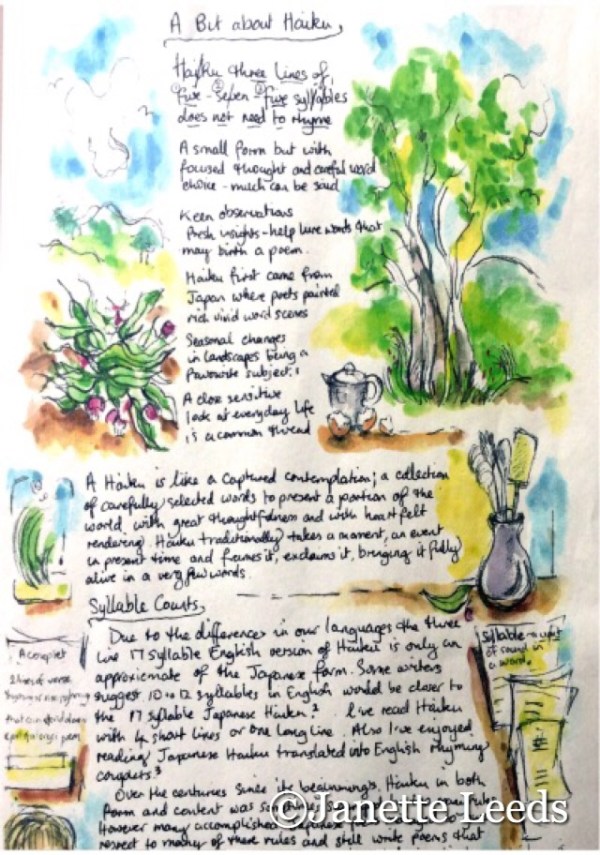 A Bit about Haiku
Haiku three lines of,
five - seven - five syllables
does not need to rhyme
A small form but with
focused thought and careful word
choice - much can be said
Keen observations
Fresh insights - help lure words that
may birth a poem.
Haiku first came from
Japan where poets painted
rich vivid word scenes
Seasonal changes
in landscapes being a
favourite subject.¹
A close sensitive
look at everyday life
is a common thread
A Haiku is like a captured contemplation; a collection
of carefully selected words to present a portion of the
world, with great thoughtfulness and with heart felt
rendering. Haiku traditionally takes a moment, an event
in present time and frames it, exclaims it, bringing it fully
alive in a very few words.
Syllable Counts
Due to the differences in our languages the three
line 17 syllable English version of Haiku is only an
approximate of the Japanese form. Some writers
suggest 10 to 12 syllables in English would be closer to
the 17 syllable Japanese Haiku.² I've read Haiku
with 4 short lines or one long line. Also I've enjoyed
reading Japanese Haiku translated into English rhyming
couplets.³
Over the centuries since its beginnings, Haiku in both
form and content was
However many accomplished
respect to many of these rules and still write poems that
A couplet
2 lines of verse
Syllable - a unit
of sound in
a word.
©Janette Leeds